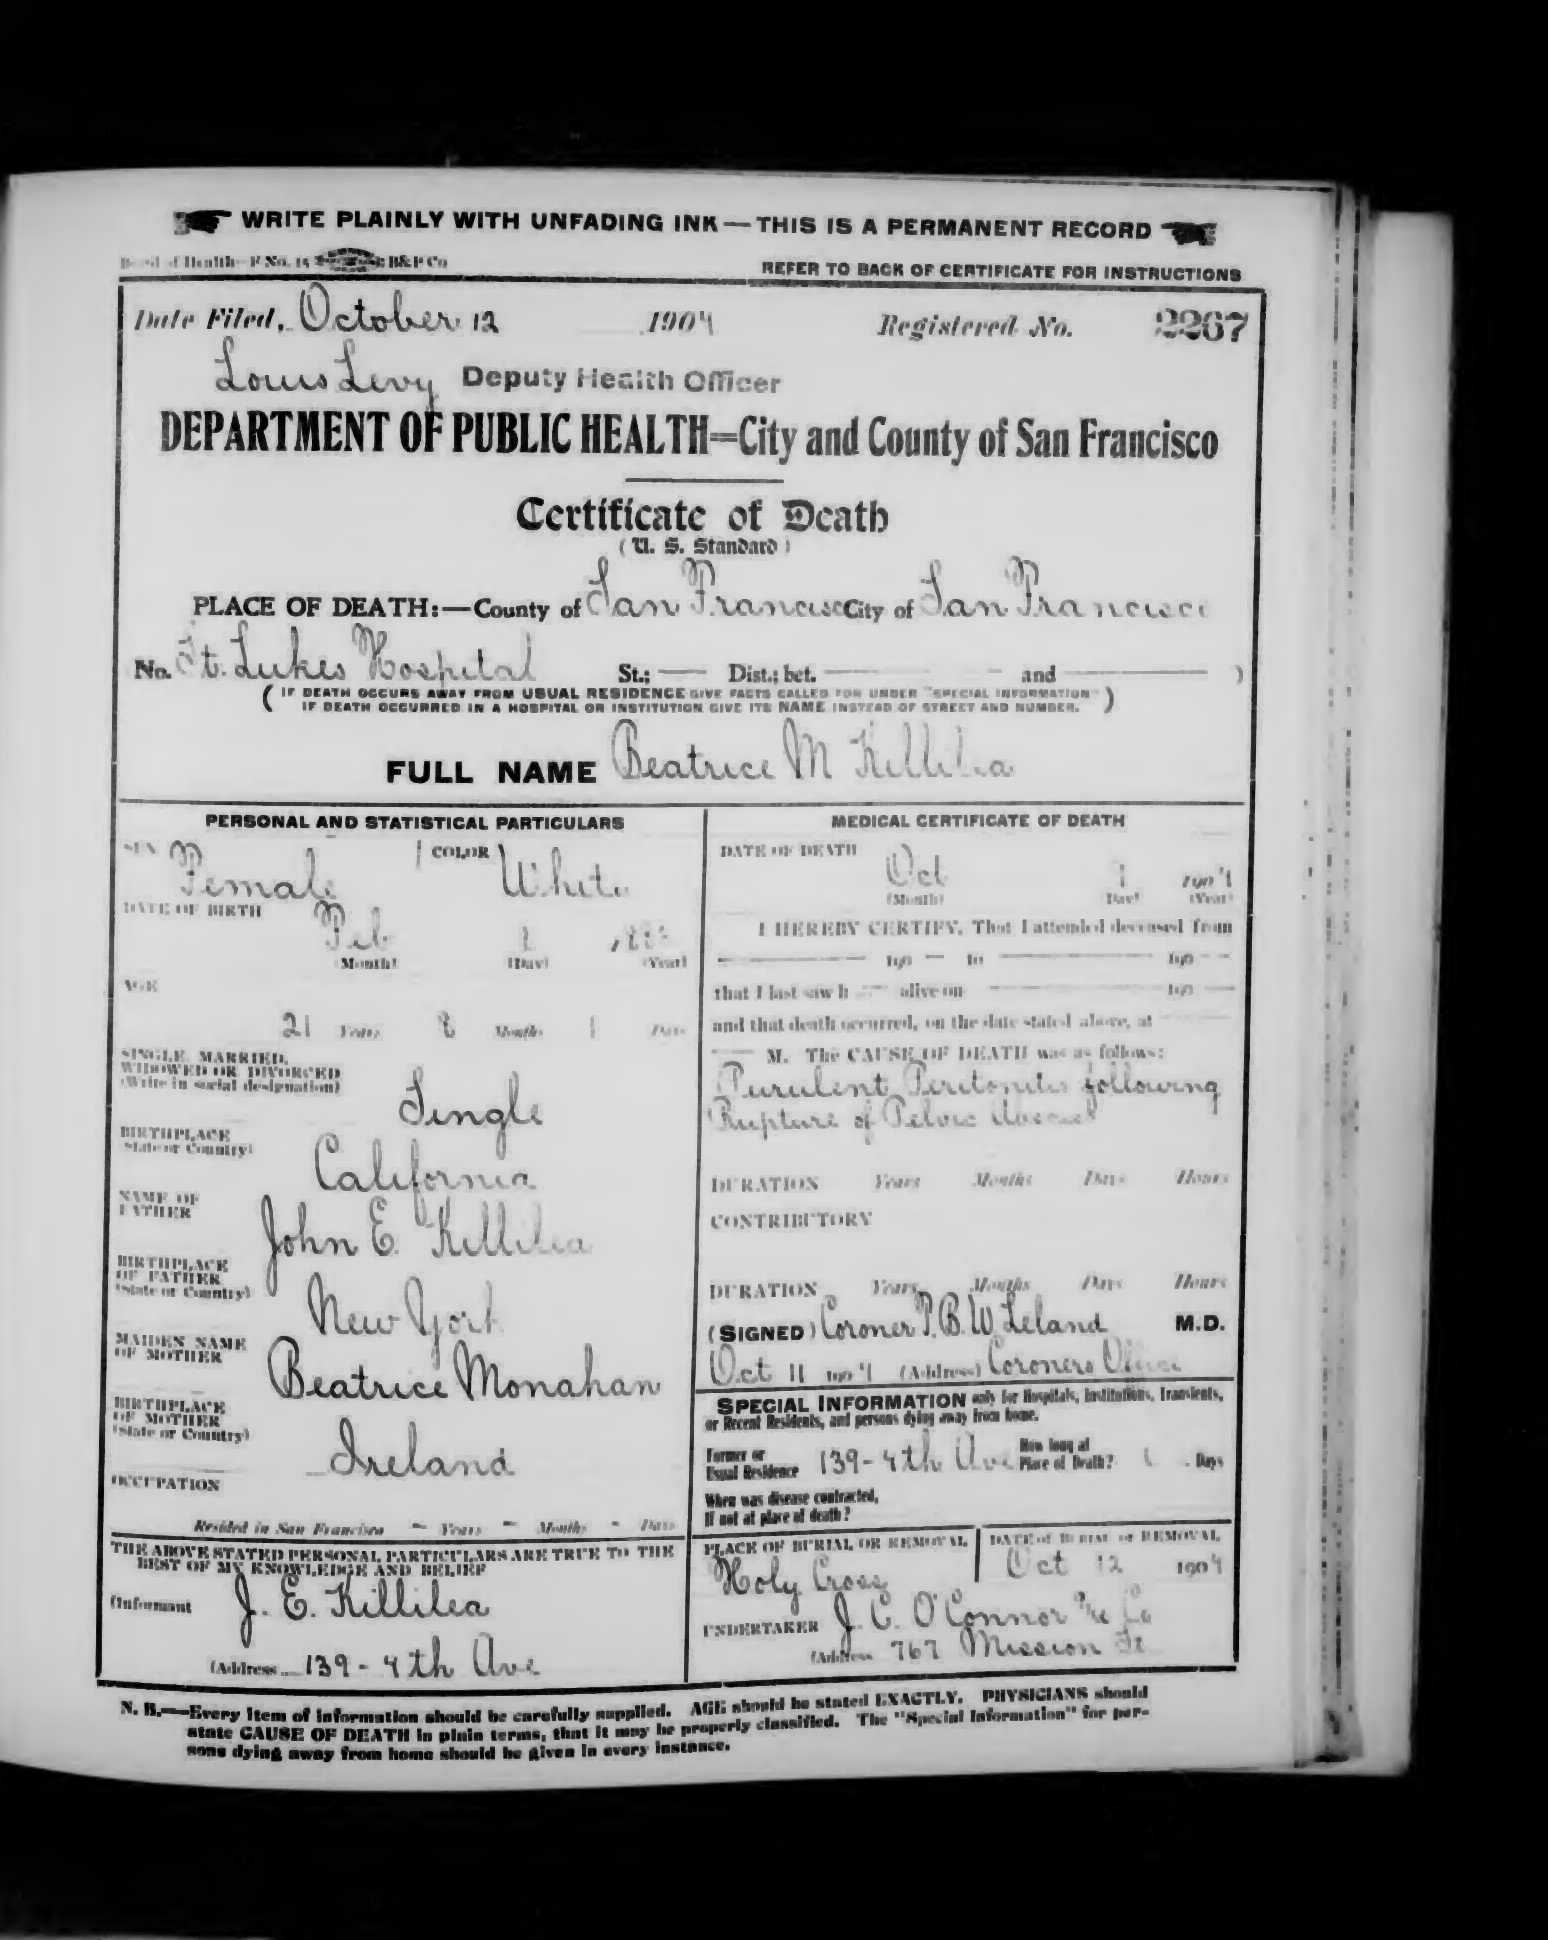 WRITE PLAINLY WITH UNFADING INK — THIS IS A PERMANENT RECORD
Board of Health—F No. 15 B&P Co
REFER TO BACK OF CERTIFICATE FOR INSTRUCTIONS
Date Filed, October 12 1904 Registered No. 2267
Louis Levy Deputy Health Officer
DEPARTMENT OF PUBLIC HEALTH=City and County of San Francisco
Certificate of Death
( U. S. Standard )
PLACE OF DEATH:—County of San Francisco City of San Francisco
No. St. Lukes Hospital St.; — Dist.; bet. — and — )
( IF DEATH OCCURS AWAY FROM USUAL RESIDENCE GIVE FACTS CALLED FOR UNDER "SPECIAL INFORMATION"
IF DEATH OCCURRED IN A HOSPITAL OR INSTITUTION GIVE ITS NAME INSTEAD OF STREET AND NUMBER. )
FULL NAME Beatrice M Killilea
PERSONAL AND STATISTICAL PARTICULARS
SEX Female COLOR White
DATE OF BIRTH
Feb
(Month) (Day) (Year)
AGE
21 Years 8 Months 1 Days
SINGLE, MARRIED,
WIDOWED OR DIVORCED
(Write in social designation)
Single
BIRTHPLACE
(State or Country)
California
NAME OF
FATHER
John E. Killilea
BIRTHPLACE
OF FATHER
(State or Country)
New York
MAIDEN NAME
OF MOTHER
Beatrice Monahan
BIRTHPLACE
OF MOTHER
(State or Country)
Ireland
OCCUPATION
Resided in San Francisco - Years - Months - Days
THE ABOVE STATED PERSONAL PARTICULARS ARE TRUE TO THE
BEST OF MY KNOWLEDGE AND BELIEF
(Informant J. E. Killilea
(Address 139 - 4th Ave
MEDICAL CERTIFICATE OF DEATH
DATE OF DEATH
Oct 1904
(Month) (Day) (Year)
I HEREBY CERTIFY, That I attended deceased from
— 190 — to — 190 —
that I last saw h — alive on — 190 —
and that death occurred, on the date stated above, at —
— M. The CAUSE OF DEATH was as follows:
Purulent Peritonitis following
Rupture of Pelvic Abscess
DURATION Years Months Days Hours
CONTRIBUTORY
DURATION Years Months Days Hours
(SIGNED) Coroner P. B. W. Leland M.D.
Oct 11 1904 (Address) Coroners Office
SPECIAL INFORMATION only for Hospitals, Institutions, Transients,
or Recent Residents, and persons dying away from home.
Former or
Usual Residence 139 - 4th Ave
How long at
Place of Death? Days
When was disease contracted,
If not at place of death?
PLACE OF BURIAL OR REMOVAL
Holy Cross
DATE of BURIAL or REMOVAL
Oct 12 1904
UNDERTAKER J. C. O'Connor Co
(Address 767 Mission St
N. B.—Every item of information should be carefully supplied. AGE should be stated EXACTLY. PHYSICIANS should
state CAUSE OF DEATH in plain terms, that it may be properly classified. The "Special Information" for per-
sons dying away from home should be given in every instance.